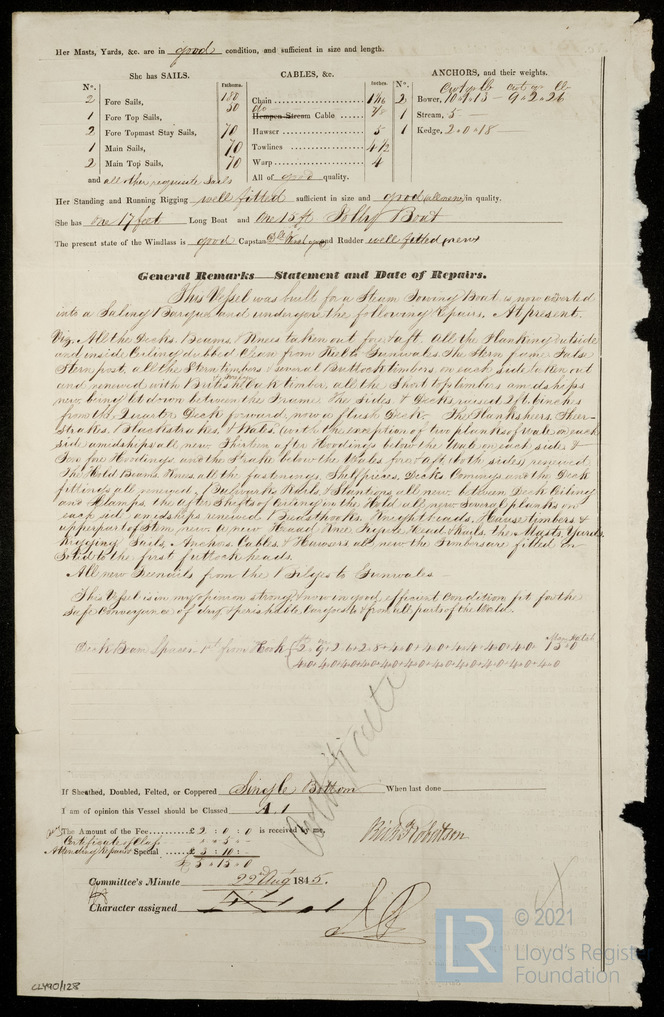 Her Masts, Yards, &c. are in good condition, and sufficient in size and length.
She has SAILS.
CABLES, &c.
ANCHORS, and their weights.
Nº.
Fathoms.
Inches.
Nº.
Cwt qr lb Cwt qr lb
2 Fore Sails, 180 Chain 1 1/16 2 Bower, 10 " 1 " 13 - 9 " 2 " 26
1 Fore Top Sails, 50 do Hempen Stream Cable 7/8 1 Stream, 5 —
2 Fore Topmast Stay Sails, 70 Hawser 5 1 Kedge, 2 " 0 " 18 —
1 Main Sails, 70 Towlines 4 1/2
2 Main Top Sails, 70 Warp 4
and all other requisite Sails All of good quality.
Her Standing and Running Rigging well fitted sufficient in size and good (all new) in quality.
She has one 17 feet Long Boat and One 15 ft Jolly Boat
The present state of the Windlass is good Capstan and Rudder well fitted (new)
General Remarks—Statement and Date of Repairs.
This Vessel was built for a Steam Towing Boat is now converted
into a Sailing Barque and undergone the following Repairs. At present.
Viz. All the Decks. Beams. & Knees taken out fore & aft. All the Planking outside
and inside Ceiling dubbed Clean from Keel to Gunwales. The Stern frame False
Stern post, all the Stern timbers & several Buttock timbers on each side taken out
and renewed with British Oak timber, all the Short top timbers amidships
new, being let down between the Frame. The sides & Decks raised 2 ft. inches
from the Quarter Deck forward, now a flush Deck. The Planksheers, Sheer-
Strakes. Blackstrakes, & Wales, (with the exception of two planks of Wale on each
side amidships all new. Thirteen after Hoodings below the Wale on each side &
Two fore Hoodings, and the Strake below the Wales fore & aft (both sides) renewed.
The Hold Beams. Knees all the fastenings, Shelfpieces, Decks Comings and the Deck
fittings all renewed, Bulwarks Rails, & Stantions all new. between Deck Ceiling
and Clamps. the after Shifts of Ceiling in the Hold all new. Several planks on
each side amidships renewed. Breasthooks. Knightheads, Hause timbers, &
upper part of Stem, new. a new Head, Knee Figure Head & Rails. The Masts, Yards.
Rigging Sails, Anchors, Cables, & Hawsers all new the Timbers are fitted in
Solid to the first futtock heads.
All new Treenails from the Bilges to Gunwales —
This Vessel is in my opinion strong & now in good, efficient Condition fit for the
Safe Conveyance of dry & perishable Cargoes to & from all parts of the World.
Deck Beam Spaces. 1st from Hook
4.0 4.0 4.0 4.0 4.0 4.0 4.0 4.0 4.0 4.0 4.0
Certificate
If Sheathed, Doubled, Felted, or Coppered Single Bottom When last done
I am of opinion this Vessel should be Classed A.1
The Amount of the Fee £2 : 0 : 0 is received by me,
Certificate of Clas. " 5 " -
Attending Repairs Special £3 : 10 : -
£5 " 15 " 0
Richd Robertson
Committee's Minute 22nd Augt 1845.
Character assigned
LR © 2021
Lloyd's Register
Foundation
CLY90/128